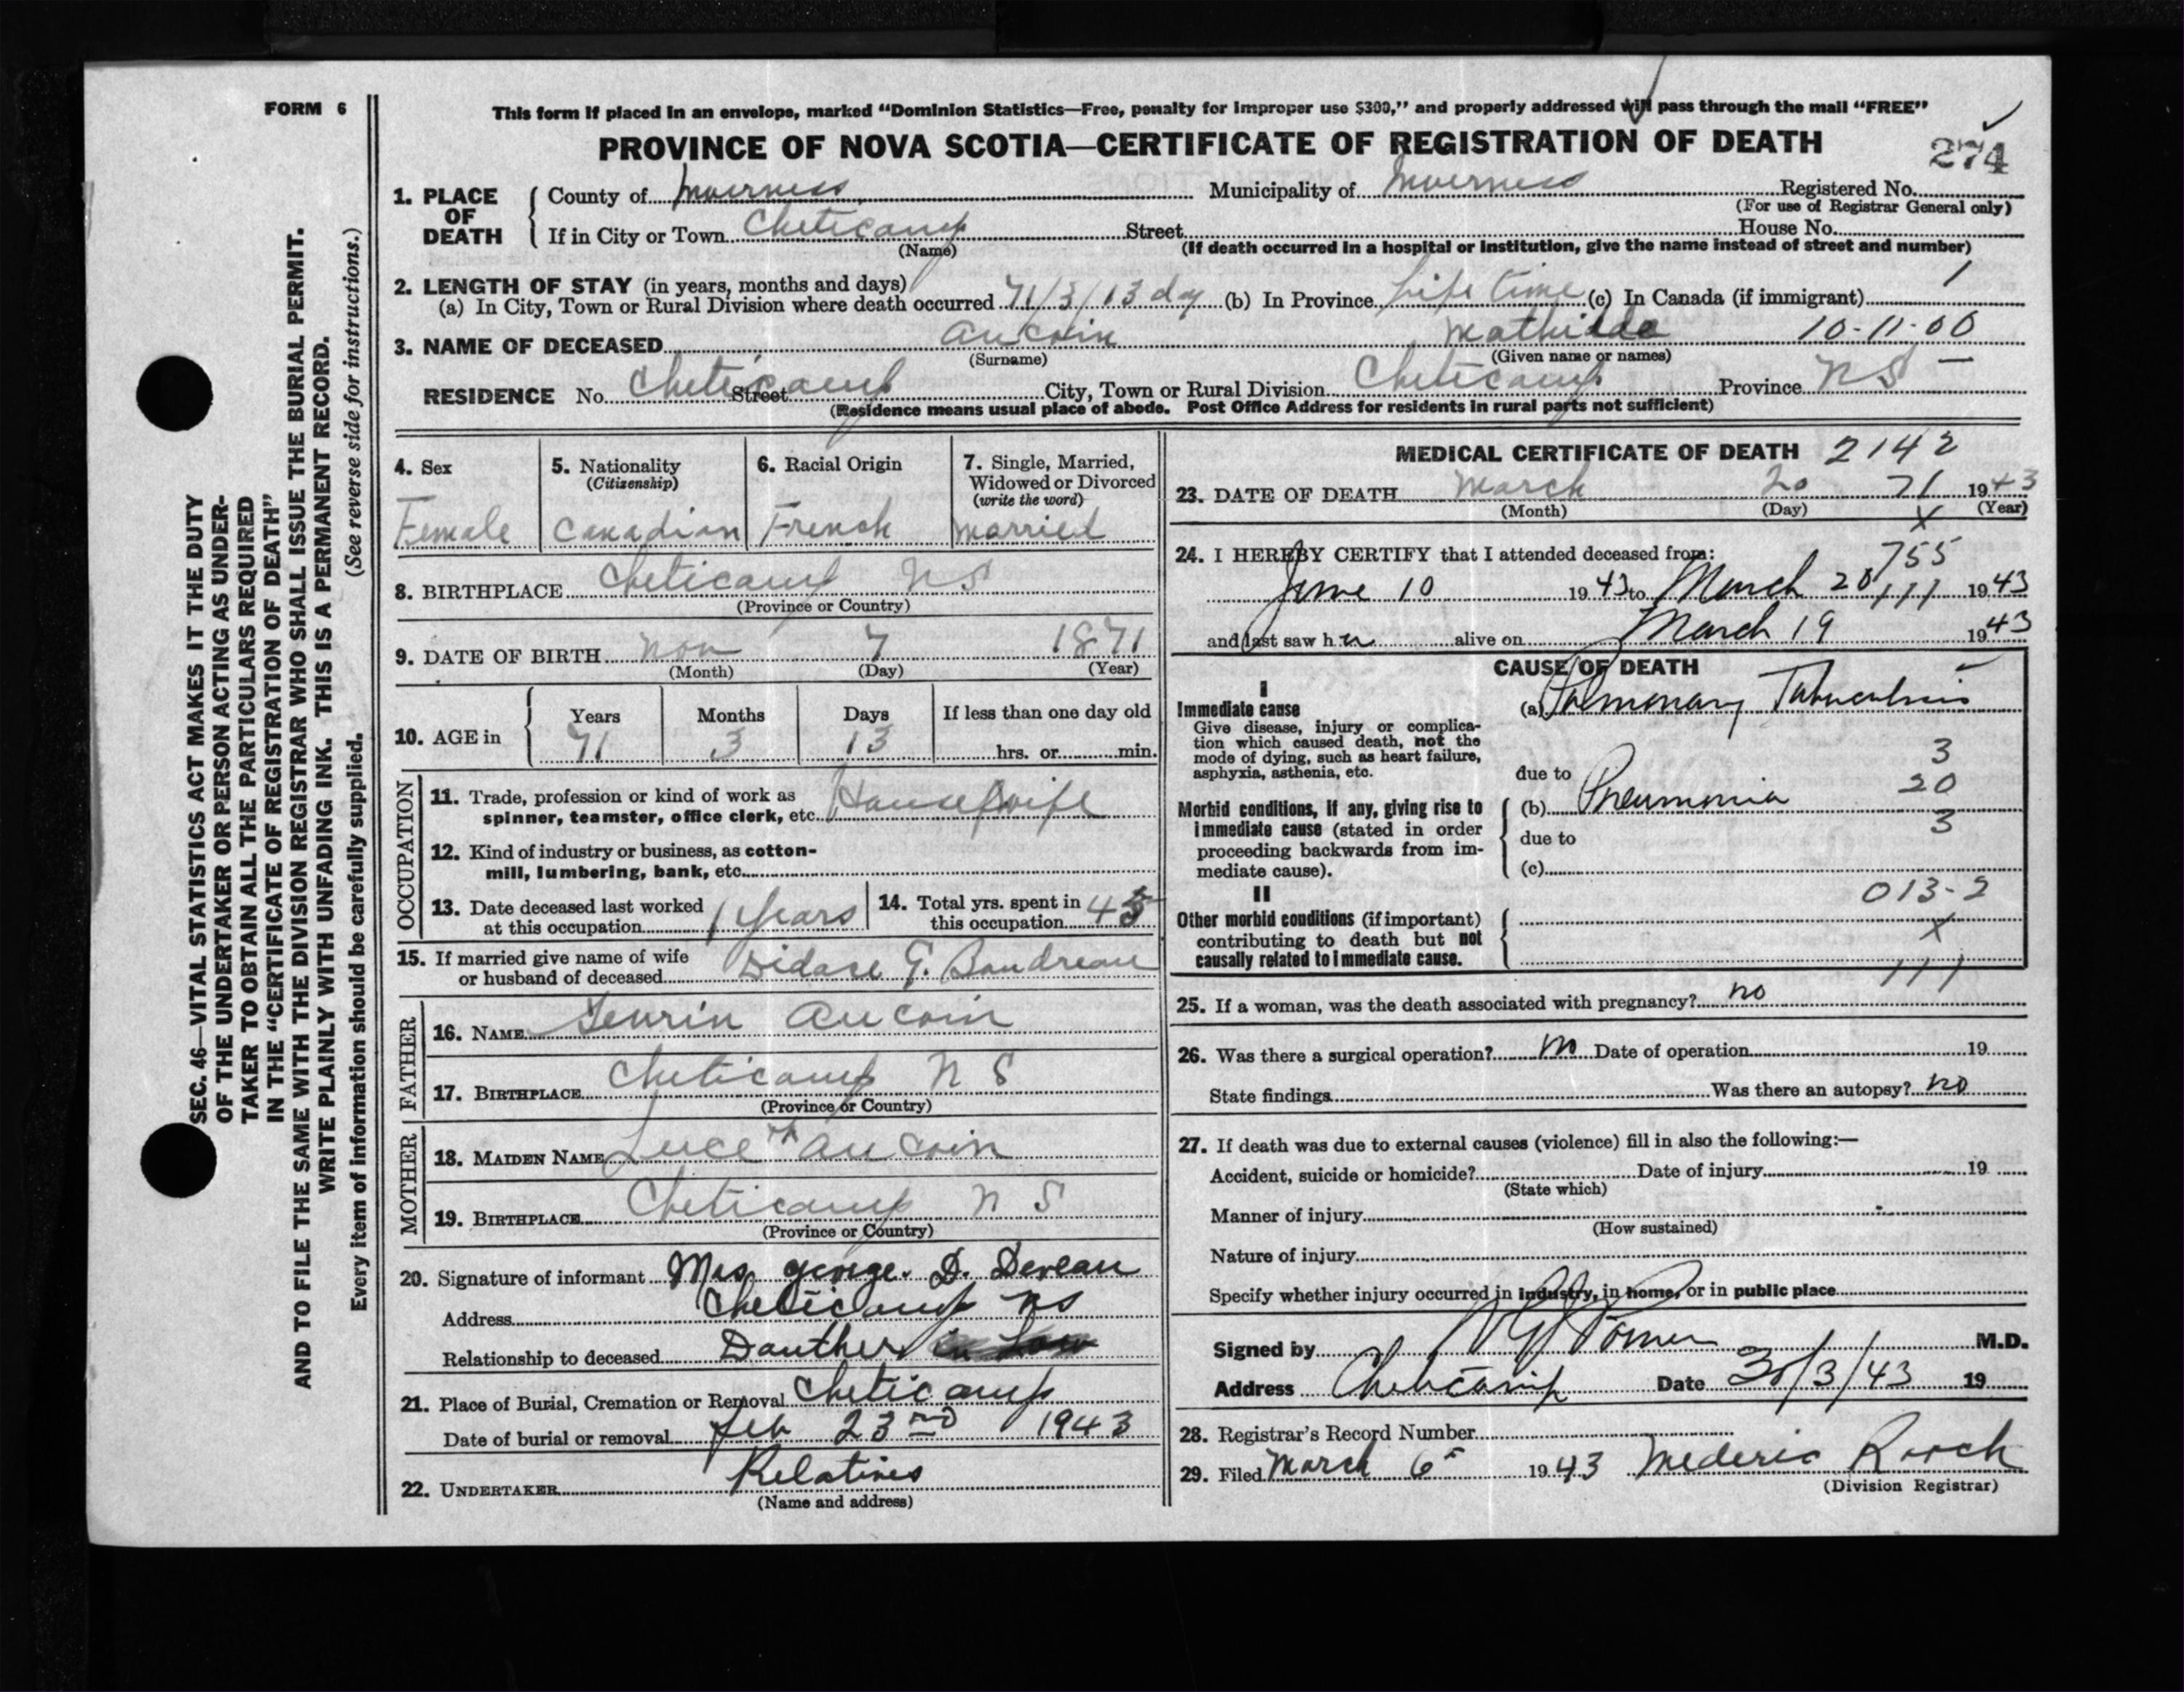 FORM 6
This form if placed in an envelope, marked “Dominion Statistics—Free, penalty for improper use $300,” and properly addressed will pass through the mail “FREE”
PROVINCE OF NOVA SCOTIA—CERTIFICATE OF REGISTRATION OF DEATH
274
1. PLACE OF DEATH County of Inverness Municipality of Inverness Registered No.
(For use of Registrar General only)
If in City or Town Cheticamp Street House No.
(Name) (If death occurred in a hospital or institution, give the name instead of street and number)
2. LENGTH OF STAY (in years, months and days) 1
(a) In City, Town or Rural Division where death occurred 71/3/13 day (b) In Province Life time (c) In Canada (if immigrant)
3. NAME OF DECEASED Aucoin Mathilda 10-11-00
(Surname) (Given name or names)
RESIDENCE No. Cheticamp Street City, Town or Rural Division Cheticamp Province NS —
(Residence means usual place of abode. Post Office Address for residents in rural parts not sufficient)
4. Sex
Female
5. Nationality
(Citizenship)
Canadian
6. Racial Origin
French
7. Single, Married,
Widowed or Divorced
(write the word)
Married
8. BIRTHPLACE Cheticamp NS
(Province or Country)
9. DATE OF BIRTH Nov 7 1871
(Month) (Day) (Year)
10. AGE in
Years Months Days If less than one day old
71 3 13 hrs. or min.
OCCUPATION
11. Trade, profession or kind of work as
spinner, teamster, office clerk, etc. Housewife
12. Kind of industry or business, as cotton-
mill, lumbering, bank, etc.
13. Date deceased last worked
at this occupation 1 years
14. Total yrs. spent in
this occupation 45
15. If married give name of wife
or husband of deceased G. Boudreau
FATHER
16. NAME Aucoin
17. BIRTHPLACE Cheticamp N S
(Province or Country)
MOTHER
18. MAIDEN NAME Luce Aucoin
19. BIRTHPLACE Cheticamp N S
(Province or Country)
20. Signature of informant Mrs George. D. Deveau
Address Cheticamp NS
Relationship to deceased Dauther in Law
21. Place of Burial, Cremation or Removal Cheticamp
Date of burial or removal Feb 23rd 1943
22. UNDERTAKER Relatives
(Name and address)
MEDICAL CERTIFICATE OF DEATH 2142
23. DATE OF DEATH March 20 71 1943
(Month) (Day) (Year)
X
24. I HEREBY CERTIFY that I attended deceased from: 755
June 10 1943 to March 20 111 1943
and last saw her alive on March 19 1943
CAUSE OF DEATH
I
Immediate cause
Give disease, injury or complica-
tion which caused death, not the
mode of dying, such as heart failure,
asphyxia, asthenia, etc.
(a) Pulmonary Tuberculosis
3
due to
20
Morbid conditions, if any, giving rise to
immediate cause (stated in order
proceeding backwards from im-
mediate cause).
(b) Pneumonia
3
due to
(c)
II
013-2
Other morbid conditions (if important)
contributing to death but not
causally related to immediate cause.
X
111
25. If a woman, was the death associated with pregnancy? no
26. Was there a surgical operation? no Date of operation 19
State findings Was there an autopsy? no
27. If death was due to external causes (violence) fill in also the following:—
Accident, suicide or homicide? Date of injury 19
(State which)
Manner of injury
(How sustained)
Nature of injury
Specify whether injury occurred in industry, in home, or in public place
Signed by M.D.
Address Cheticamp Date 3/43 19
28. Registrar's Record Number
29. Filed March 6 1943 Mederic Roach
(Division Registrar)
SEC. 46—VITAL STATISTICS ACT MAKES IT THE DUTY
OF THE UNDERTAKER OR PERSON ACTING AS UNDER-
TAKER TO OBTAIN ALL THE PARTICULARS REQUIRED
IN THE “CERTIFICATE OF REGISTRATION OF DEATH”
AND TO FILE THE SAME WITH THE DIVISION REGISTRAR WHO SHALL ISSUE THE BURIAL PERMIT.
WRITE PLAINLY WITH UNFADING INK. THIS IS A PERMANENT RECORD.
Every item of information should be carefully supplied. (See reverse side for instructions.)